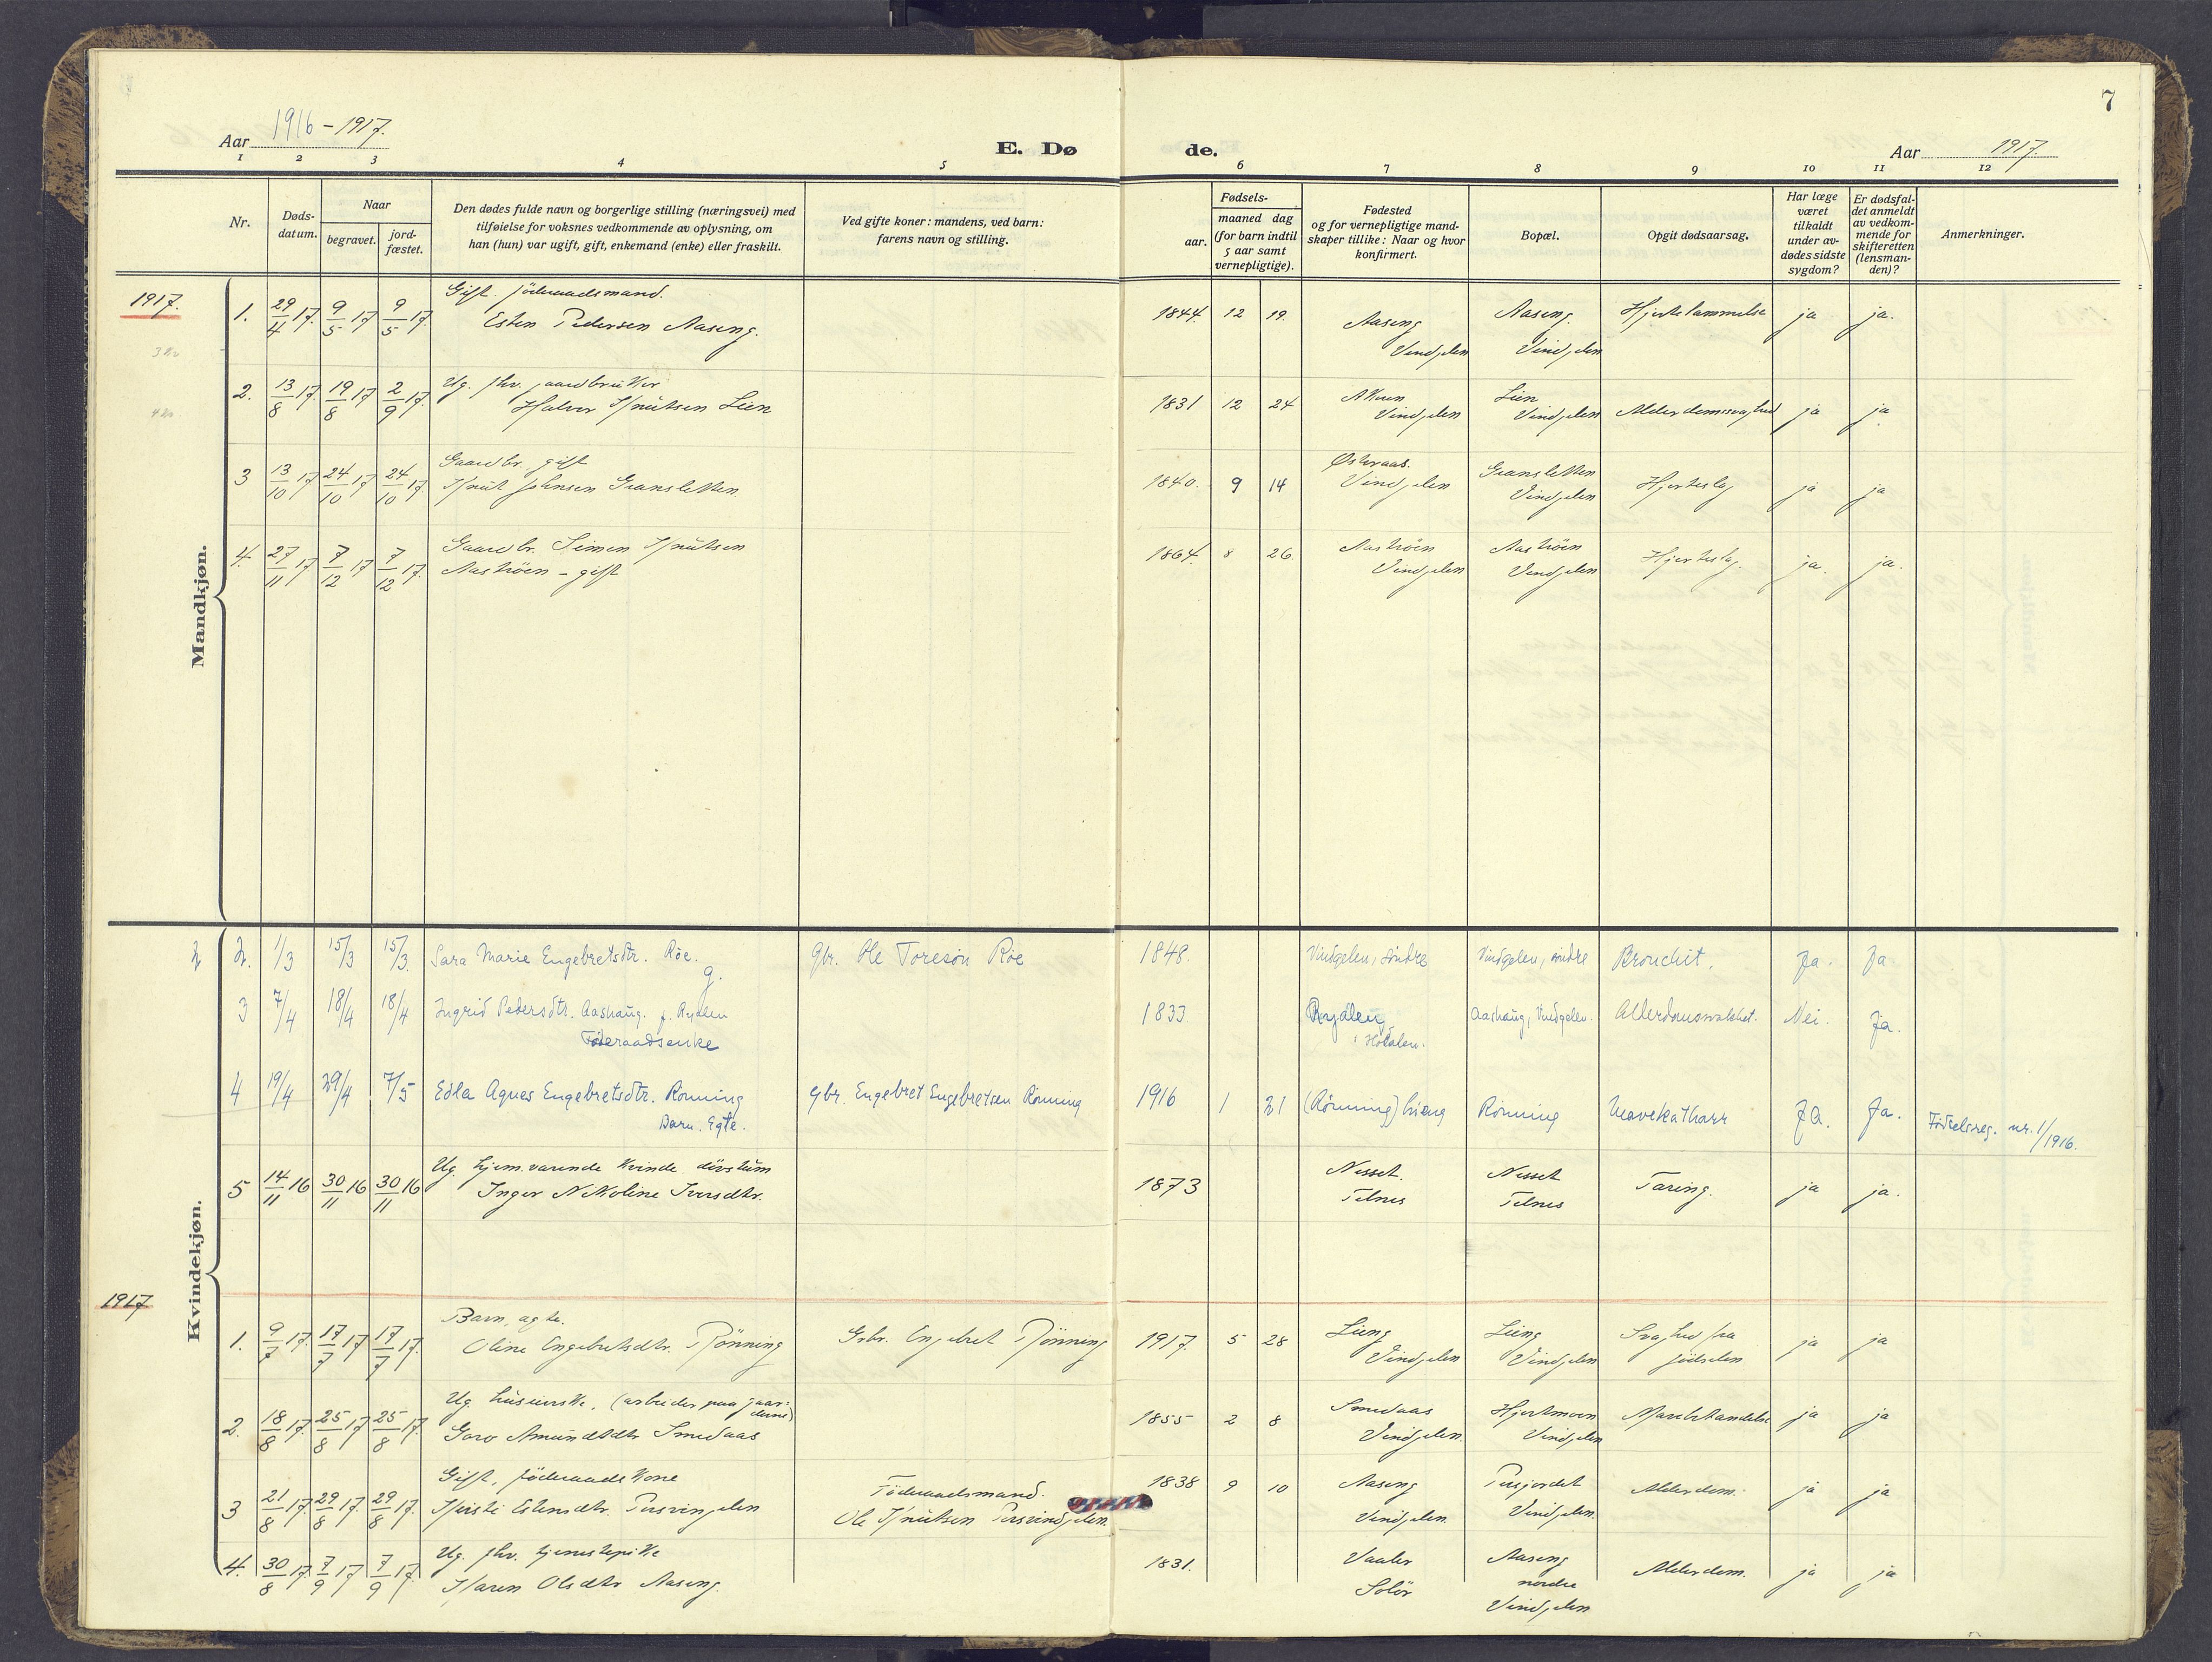 7
Aar 1916 - 1917.
E. Dø
de.
Aar 1917.
1 2 3 4 5 6 7 8 9 10 11 12
Nr.
Døds-
datum.
Naar
begravet.
jord-
fæstet.
Den dødes fulde navn og borgerlige stilling (næringsvei) med
tilføielse for voksnes vedkommende av oplysning, om
han (hun) var ugift, gift, enkemand (enke) eller fraskilt.
Ved gifte koner: mandens, ved barn:
farens navn og stilling.
Fødsels-
aar.
maaned dag
(for barn indtil
5 aar samt
vernepligtige).
Fødested
og for vernepligtige mand-
skaper tillike: Naar og hvor
konfirmert.
Bopæl.
Opgit dødsaarsag.
Har læge
været
tilkaldt
under av-
dødes sidste
sygdom?
Er dødsfal-
det anmeldt
av vedkom-
mende for
skifteretten
(lensman-
den)?
Anmerkninger.
Mandkjøn.
1917.
1. 29/4 17. 9/5 17 9/5 17. Gift. föderaadsmand.
Esten Pedersen Aaseng.
1844. 12 19. Aaseng Vindgelen
Aaseng. Vindgelen
Hjertelammelse ja ja.
2. 13/8 17. 19/8 17 2/9 17. Ug. fhv. gaardbruker
Halvor Knutsen Lien
1831 12 24 Vindgelen
Lien Vindgelen
Alderdomssvaghed ja ja.
3 13/10 17 24/10 17 24/10 17. Gaardbr. gift
Knut Johnsen Gransletten
1840. 9 14 Østeraas. Vindgelen
Gransletten Vindgelen
Hjerteslag ja ja
4. 27/11 17 7/12 17 7/12 17. Gaardbr. Simen Knutsen
Aaströen - gift
1864. 8 26 Aaströen Vindgelen
Aaströen Vindgelen
Hjerteslag. ja. ja.
Kvindekjøn.
2 2. 1/3 15/3 15/3. Sara Marie Engebretsdtr. Røe.
g.
gbr. Ole Toresøn Røe
1848. Vindgelen, søndre
Vindgelen, søndre
Bronchit. Ja. Ja
3 7/4 18/4 18/4 Ingrid Pedersdtr. Aashaug. f. Rydlen
Føderaadsenke
1833 Rydlen, Hodalen.
Aashaug, Vindgelen.
Alderdomssvakhet. Nei. Ja.
4 19/4 29/4 7/5 Edla Agnes Engebretsdtr. Rønning
Barn. Egte.
gbr. Engebret Engebretsen Rønning
1916 1 21 (Rønning) Lieng
Rønning
Mavekatharr Ja. Ja.
Fødselsreg. nr. 1/1916.
5 14/11 16 30/11 16 30/11 16 Ug. hjem. varende kvinde dövstum
Inger Nikoline Iversdtr.
1873 Nesset. Telnes
Nesset Telnes
Tæring. ja ja.
1917
1. 9/7 17. 17/7 17 17/7 17. Barn, ægte.
Oline Engebretsdtr. Rönning
Grbr. Engebret Rönning
1917. 5 28 Lieng Vindgelen
Lieng Vindgelen
Svaghed fra
födselen ja ja
2. 18/8 17. 25/8 17 25/8 17. Ug. (arbeider paa gaar-
dene)
Goro Amundsdtr Smedaas
1855 2 8 Smedaas Vindgelen.
Hjortmoen Vindgelen
ja ja
3 21/8 17. 29/8 17. 29/8 17. Gift, föderaadskone
Kristi Estensdtr. Persvingelen
Föderaadsmand.
Ole Knutsen Persvindgelen.
1838 9 10 Aaseng Vindgelen.
Persjordet Vindgelen.
Alderdom. ja ja
4. 30/8 17. 7/9 17 7/9 17. Ug. fhv. tjenestepike
Karen Olsdtr Aaseng.
1831. Vaaler Solör
Aaseng nordre Vindgelen
Alderdom. ja ja